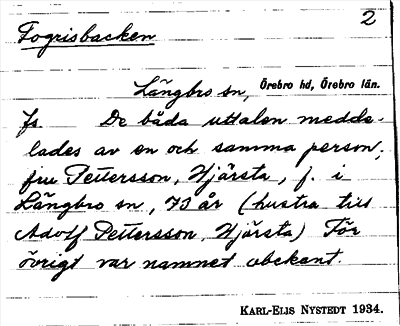 2
Fogrisbacken
Längbro sn, Örebro hd, Örebro län.
Js. De båda uttalen medde-
lades av en och samma person,
fru Pettersson, Hjärsta, f. i
Längbro sn, 73 år (hustru till
Adolf Pettersson, Hjärsta) För
övrigt var namnet obekant.
KARL-ELIS NYSTEDT 1934.